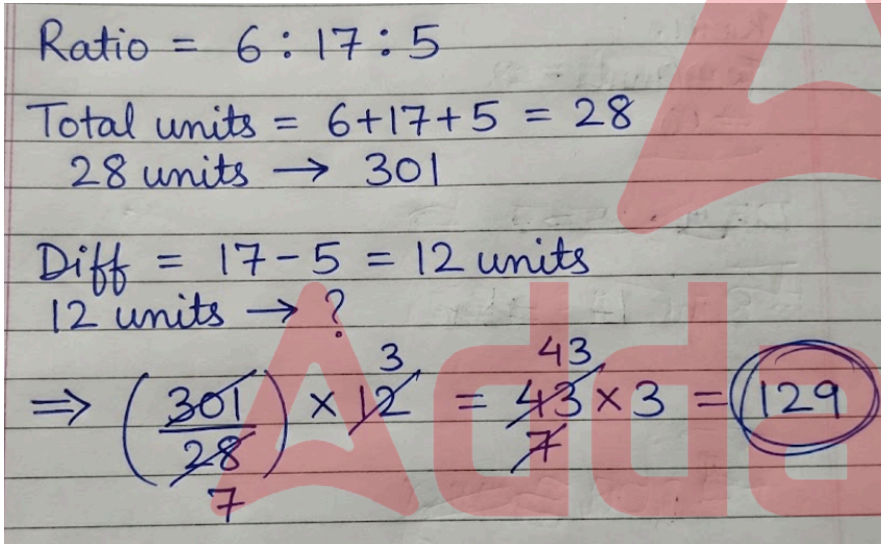 Ratio = 6 : 17 : 5
Total units = 6+17+5 = 28
28 units → 301
Diff = 17 - 5 = 12 units
12 units → ?
3 43
⇒ (301/28) × 12 = 43/7 × 3 = 129
7
Adda